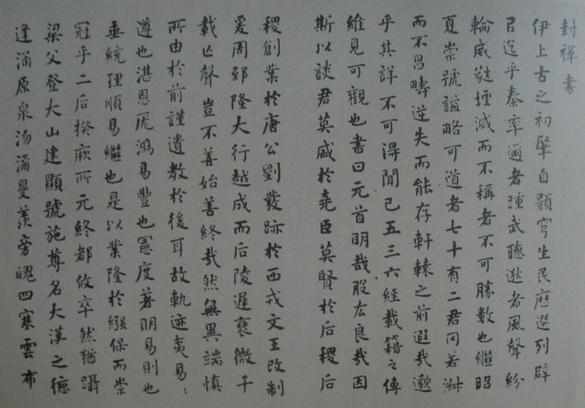 封禪書
伊上古之初肇自顥穹生民歷選列辟
㠯迄乎秦率邇者踵武聽逖者風聲紛
輪威蕤堙滅而不稱者不可勝數也繼昭
夏崇號謚略可道者七十有二君罔若淑
而不昌疇逆失而能存軒轅之前遐哉邈
乎其詳不可得聞已五三六經載籍之傳
維見可觀也書曰元首明哉股肱良哉因
斯以談君莫盛於堯臣莫賢於后稷后
稷創業於唐公劉發跡於西戎文王改制
爰周郅隆大行越成而后陵遲衰微千
載亡聲豈不善始善終哉然無異端慎
所由於前謹遺教於後耳故軌迹夷易〻
遵也湛恩厖鴻易豐也憲度著明易則也
垂統理順易繼也是以業隆於繈保而崇
冠乎二后揆厥所元終都攸卒然猶躡
梁父登大山建顯號施尊名大漢之德
逢涌原泉沕潏曼羨旁魄四塞雲布